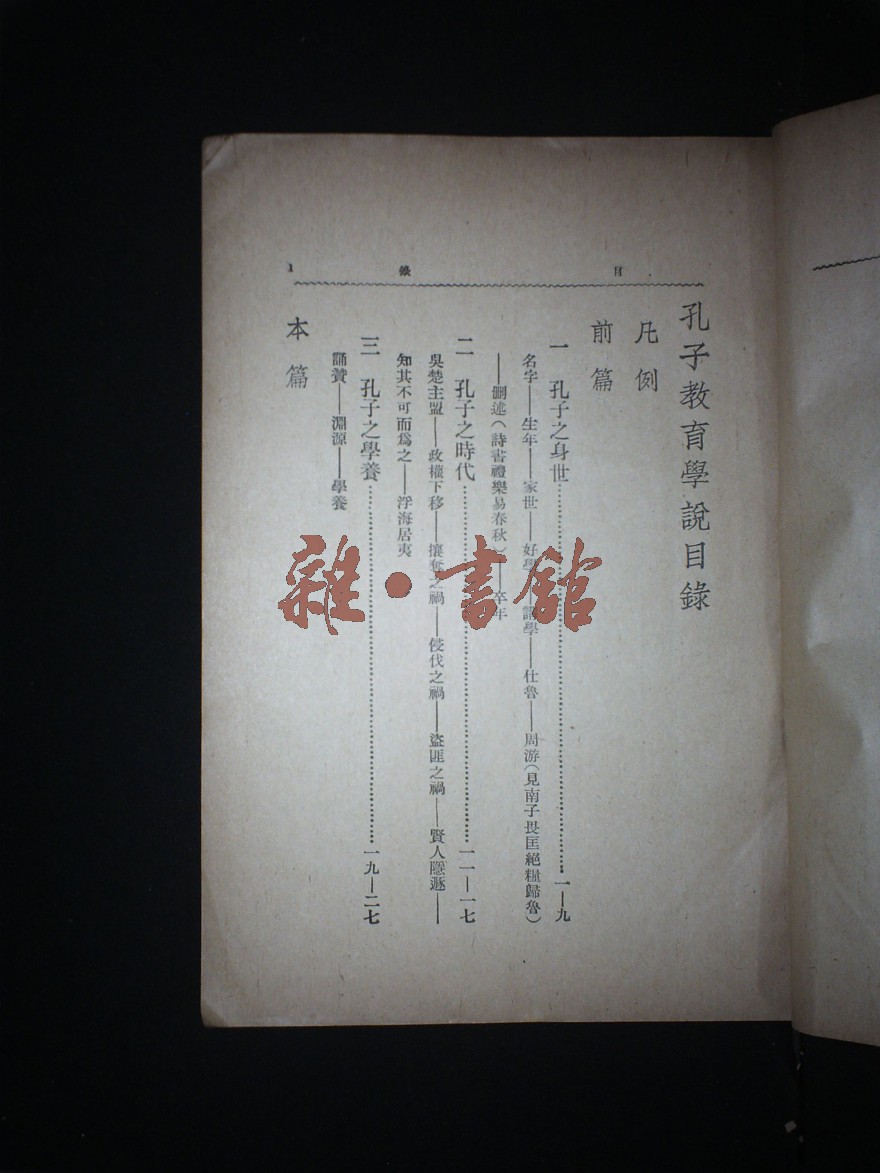 目錄 1
孔子教育學說目錄
凡例
前篇
一 孔子之身世……一—九
名字——生年——家世——好學——講學——仕魯——周游(見南子畏匡絕糧歸魯)
——刪述(詩書禮樂易春秋)——卒年
二 孔子之時代……一一—一七
吳楚主盟——政權下移——攘奪之禍——侵伐之禍——盜匪之禍——賢人隱遯——
知其不可而爲之——浮海居夷
三 孔子之學養……一九—二七
誦贊——淵源——學養
本篇
雜·書館